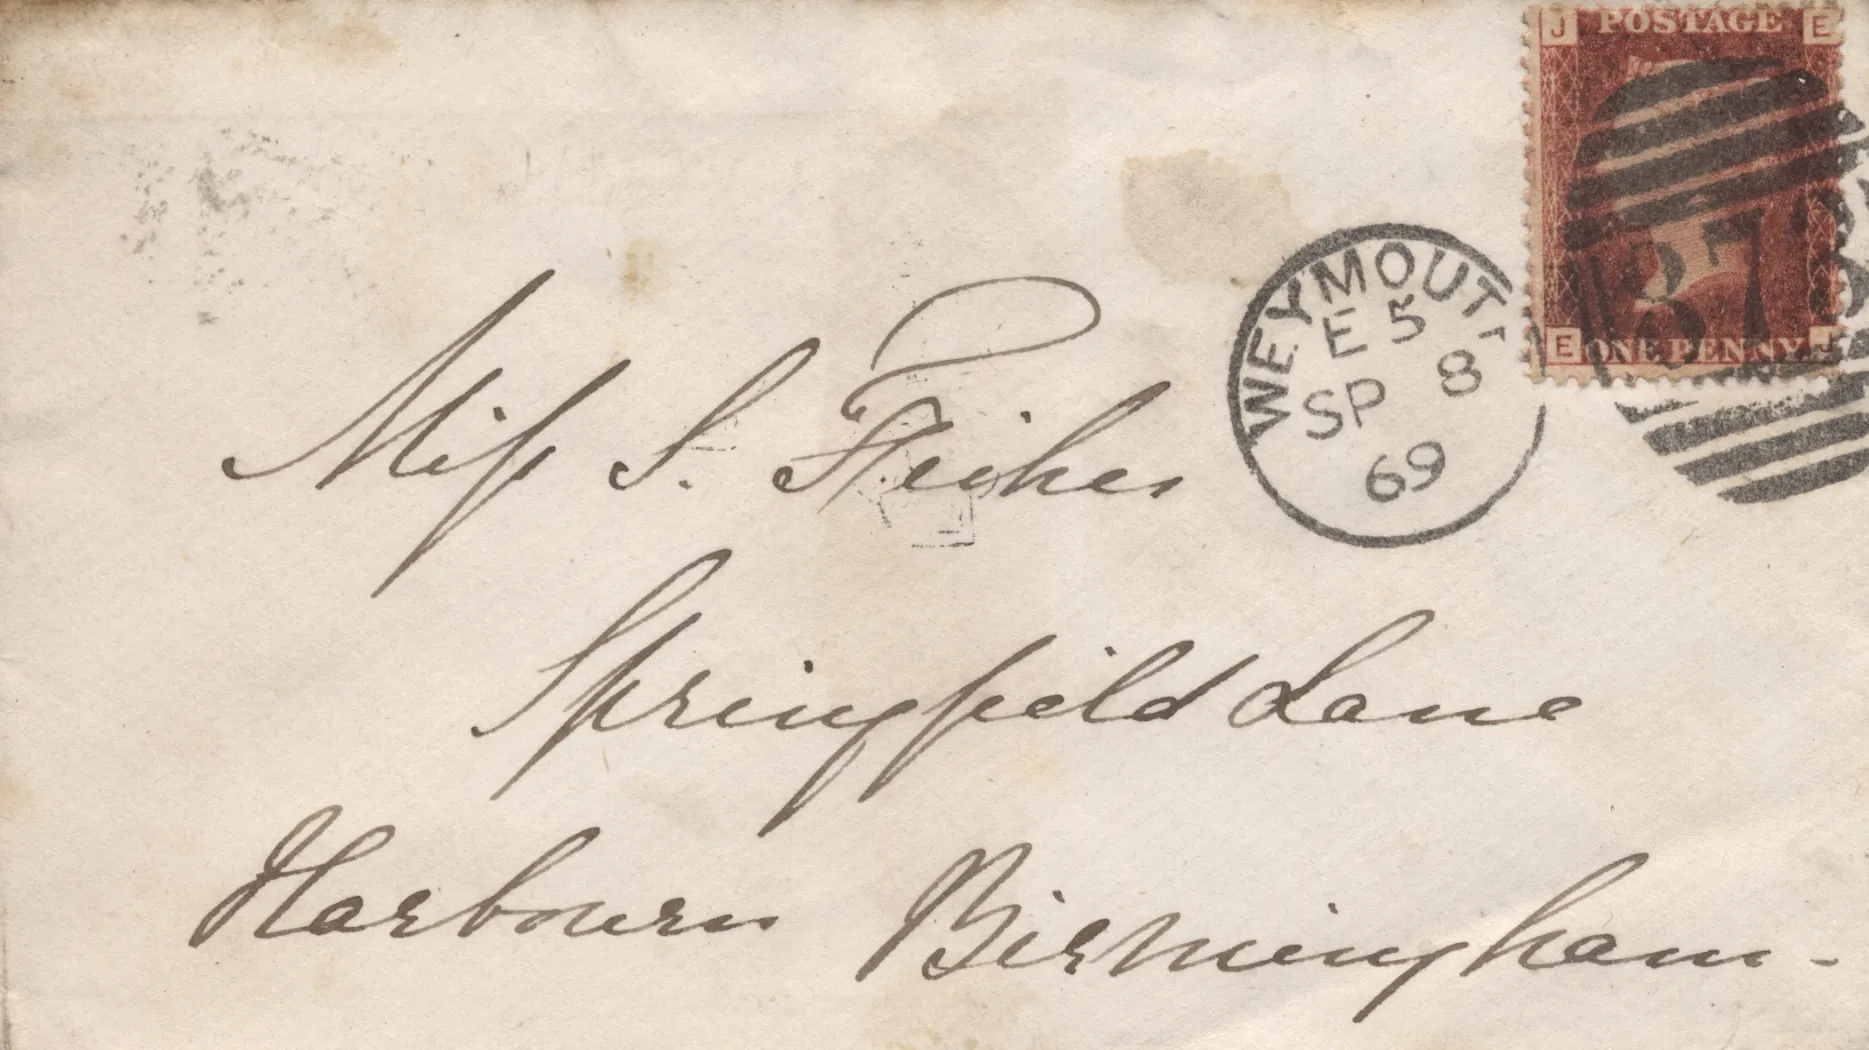 J POSTAGE E
E ONE PENNY J
WEYMOUT
E 5
SP 8
69
Miss S.
Springfield Lane
Harbourn Birmingham -